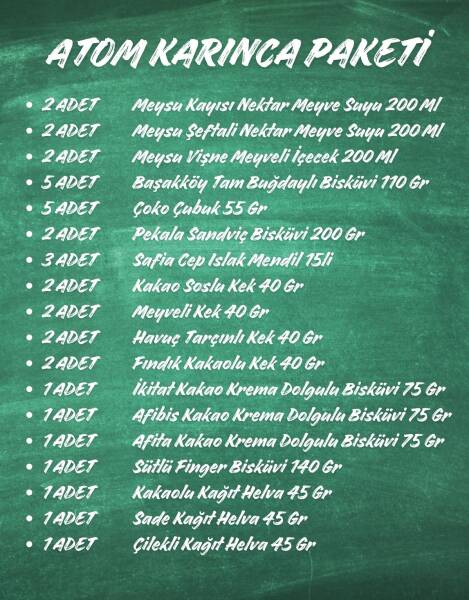 ATOM KARINCA PAKETİ
• 2 ADET Meysu Kayısı Nektar Meyve Suyu 200 Ml
• 2 ADET Meysu Şeftali Nektar Meyve Suyu 200 Ml
• 2 ADET Meysu Vişne Meyveli İçecek 200 Ml
• 5 ADET Başakköy Tam Buğdaylı Bisküvi 110 Gr
• 5 ADET Çoko Çubuk 55 Gr
• 2 ADET Pekala Sandviç Bisküvi 200 Gr
• 3 ADET Safia Cep Islak Mendil 15li
• 2 ADET Kakao Soslu Kek 40 Gr
• 2 ADET Meyveli Kek 40 Gr
• 2 ADET Havuç Tarçınlı Kek 40 Gr
• 2 ADET Fındık Kakaolu Kek 40 Gr
• 1 ADET İkitat Kakao Krema Dolgulu Bisküvi 75 Gr
• 1 ADET Afibis Kakao Krema Dolgulu Bisküvi 75 Gr
• 1 ADET Afita Kakao Krema Dolgulu Bisküvi 75 Gr
• 1 ADET Sütlü Finger Bisküvi 140 Gr
• 1 ADET Kakaolu Kağıt Helva 45 Gr
• 1 ADET Sade Kağıt Helva 45 Gr
• 1 ADET Çilekli Kağıt Helva 45 Gr